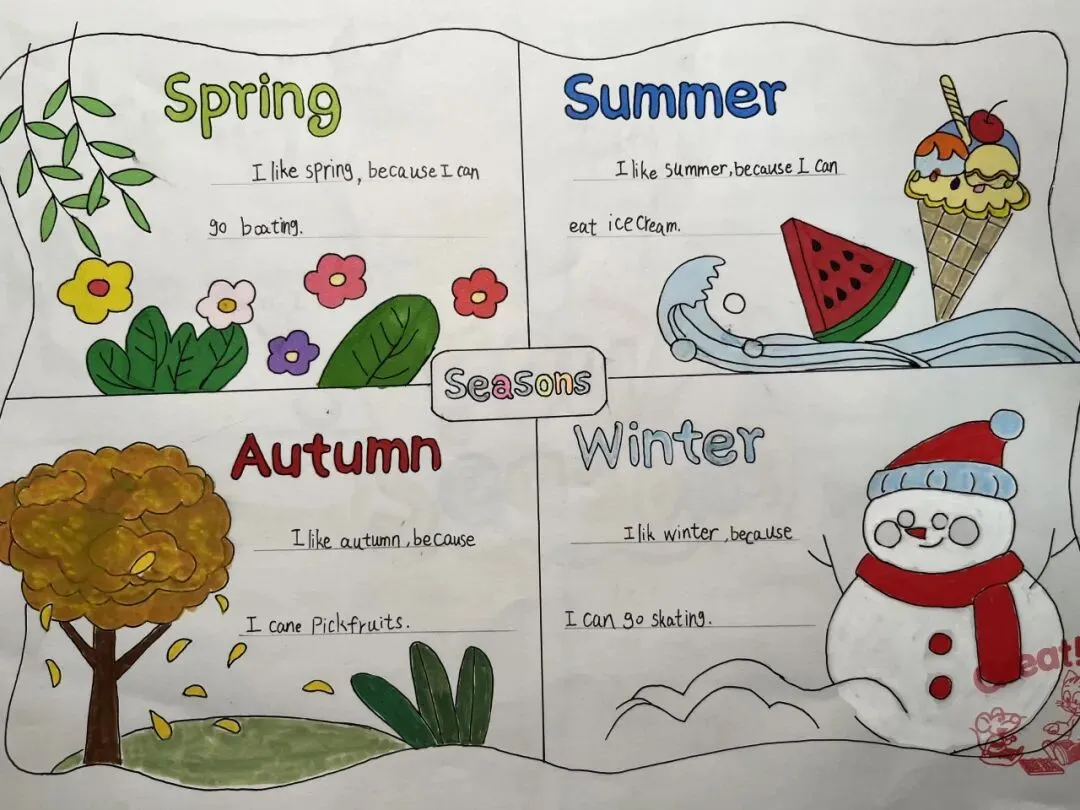 Spring
I like spring, because I can
go boating.
Summer
I like summer, because I can
eat ice cream.
Seasons
Autumn
I like autumn, because
I cane Pickfruits.
Winter
I lik winter, because
I can go skating.
Great!